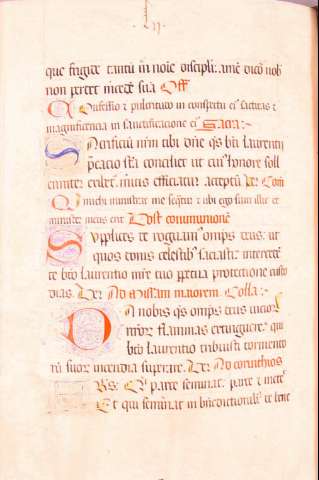 que frigide tantū ī noīe discipli: amē dico uob
non perdet mcedē suā Off
Confessio ⁊ pulcritudo in conspectu eī sctitas ⁊
magnificencia in sanctificatione eī Sacra:
Sacrificiū nrm tibi dne qs bti laurentii
p̄cacio scta conciliet ut cuī honore soll
eius meritis efficiatur acceptū Com
Qui michi ministrat me sequat ⁊ ubi ego sum illic et
minister meus erit Post communionē
Supplices te rogamus omps deus: ut
quos donis celestib sacias
te bto laurentio mre tuo perpetua protectione custo
dias. Ad missam maiorem Colla:
Da nobis qs omps deus uicior
nrōr flammas extinguere: qui
bto laurentio tribuisti tormento
rū suor incendia superare. Ad corinthios
Qui parce seminat. parce ⁊ metet
Et qui seminat in bndictionib de bene